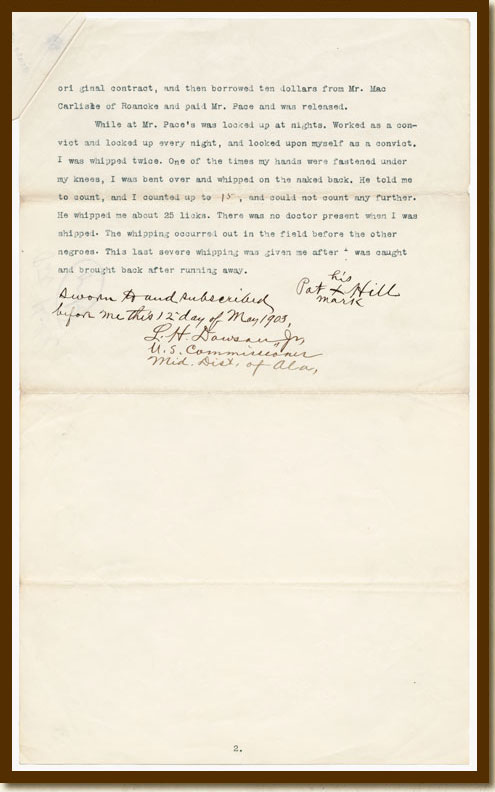 ori ginal contract, and then borrowed ten dollars from Mr. Mac
Carlisle of Roanoke and paid Mr. Pace and was released.
While at Mr. Pace's was locked up at nights. Worked as a con-
vict and locked up every night, and looked upon myself as a convict.
I was whipped twice. One of the times my hands were fastened under
my knees, I was bent over and whipped on the naked back. He told me
to count, and I counted up to 15, and could not count any further.
He whipped me about 25 licks. There was no doctor present when I was
whipped. The whipping occurred out in the field before the other
negroes. This last severe whipping was given me after I was caught
and brought back after running away.
his
Pat X Hill
mark
Sworn to and subscribed
before me this 12 day of May 1903,
L. H. Dawson Jr,
U.S. Commissioner
Mid. Dist. of Ala,
2.